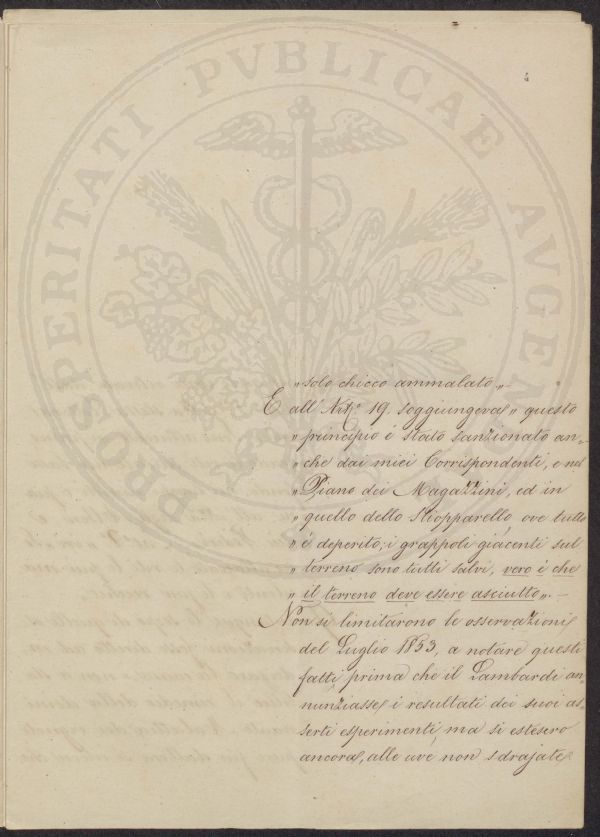 PROSPERITATI PVBLICAE AVGENDAE
„ solo chicco ammalato „ —
E all' Art.° 19. soggiungeva „ questo
„ principio è stato sanzionato an-
„ che dai miei Corrispondenti, e nel
„ Piano dei Magazzini, ed in
„ quello dello Stiopparello, ove tutto
„ è deperito; i grappoli giacenti sul
„ terreno sono tutti salvi, vero è che
„ il terreno deve essere asciutto „. —
Non si limitarono le osservazioni
del Luglio 1853, a notare questi
fatti prima che il Lambardi an-
nunziasse i resultati dei suoi as-
serti esperimenti, ma si estesero
ancora, alle uve non sdrajate